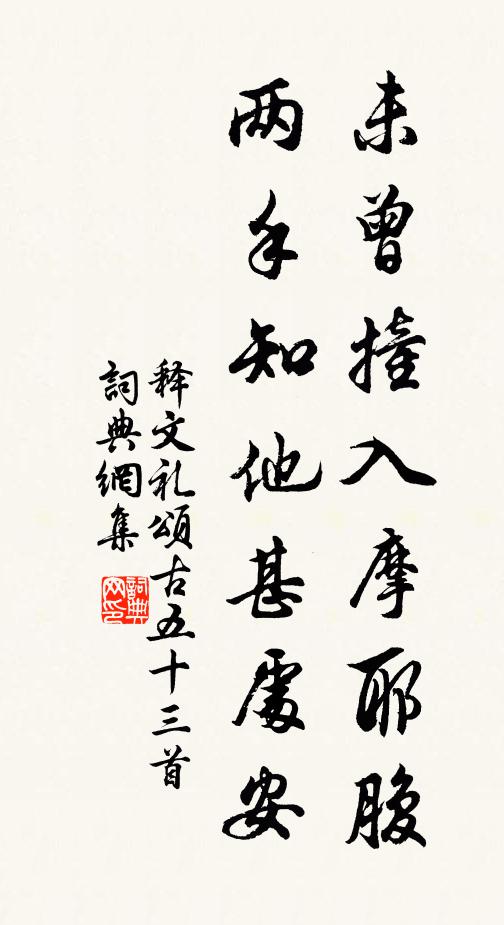 未曾撞入摩耶腹
两手知他甚處安
释文礼頌古五十三首
詞典網集
詞典
网印